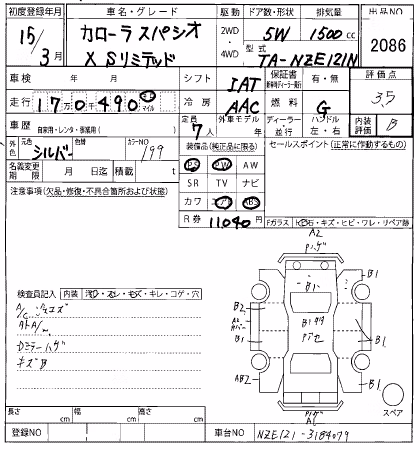 初度登録年月 車名・グレード 駆動 ドア数・形状 排気量 出品NO
15/3月 カローラスパシオ X Sリミテッド 2WD・4WD 5W 1500cc 2086
型式 TA-NZE121N
車検 年 月 シフト IAT 保証書 有・無 評価点
走行 17万0千490 キロ マイル 冷房 AAC 燃料 G 3.5
車歴 自家用・レンタ・事業用( ) 定員 7人 外車モデル 年 ディーラー・並行 ハンドル 左・右 内装評価 B
外色 元色 シルバー 色替 カラーNO 199 装備品(純正品に限る) セールスポイント(正常に作動するもの)
名義変更期限 月 日迄 積載 t
PS PW AW
SR TV ナビ
カワ エアB ABS
R券 11,040円
注意事項(欠品・修復・不具合箇所および状態)
Fガラス トビ石・キズ・ヒビ・ワレ・リペア跡
A2
ハゲ
B1
B1
B2
A2
カバー
B1
B1
B1
AB2
B1
ハゲ
A1
スペア
検査員記入 内装 汚レ・スレ・キズ・キレ・コゲ・穴
A/C
キズB
長さ cm 幅 cm 高さ cm
登録NO 車台NO NZE121-3184079